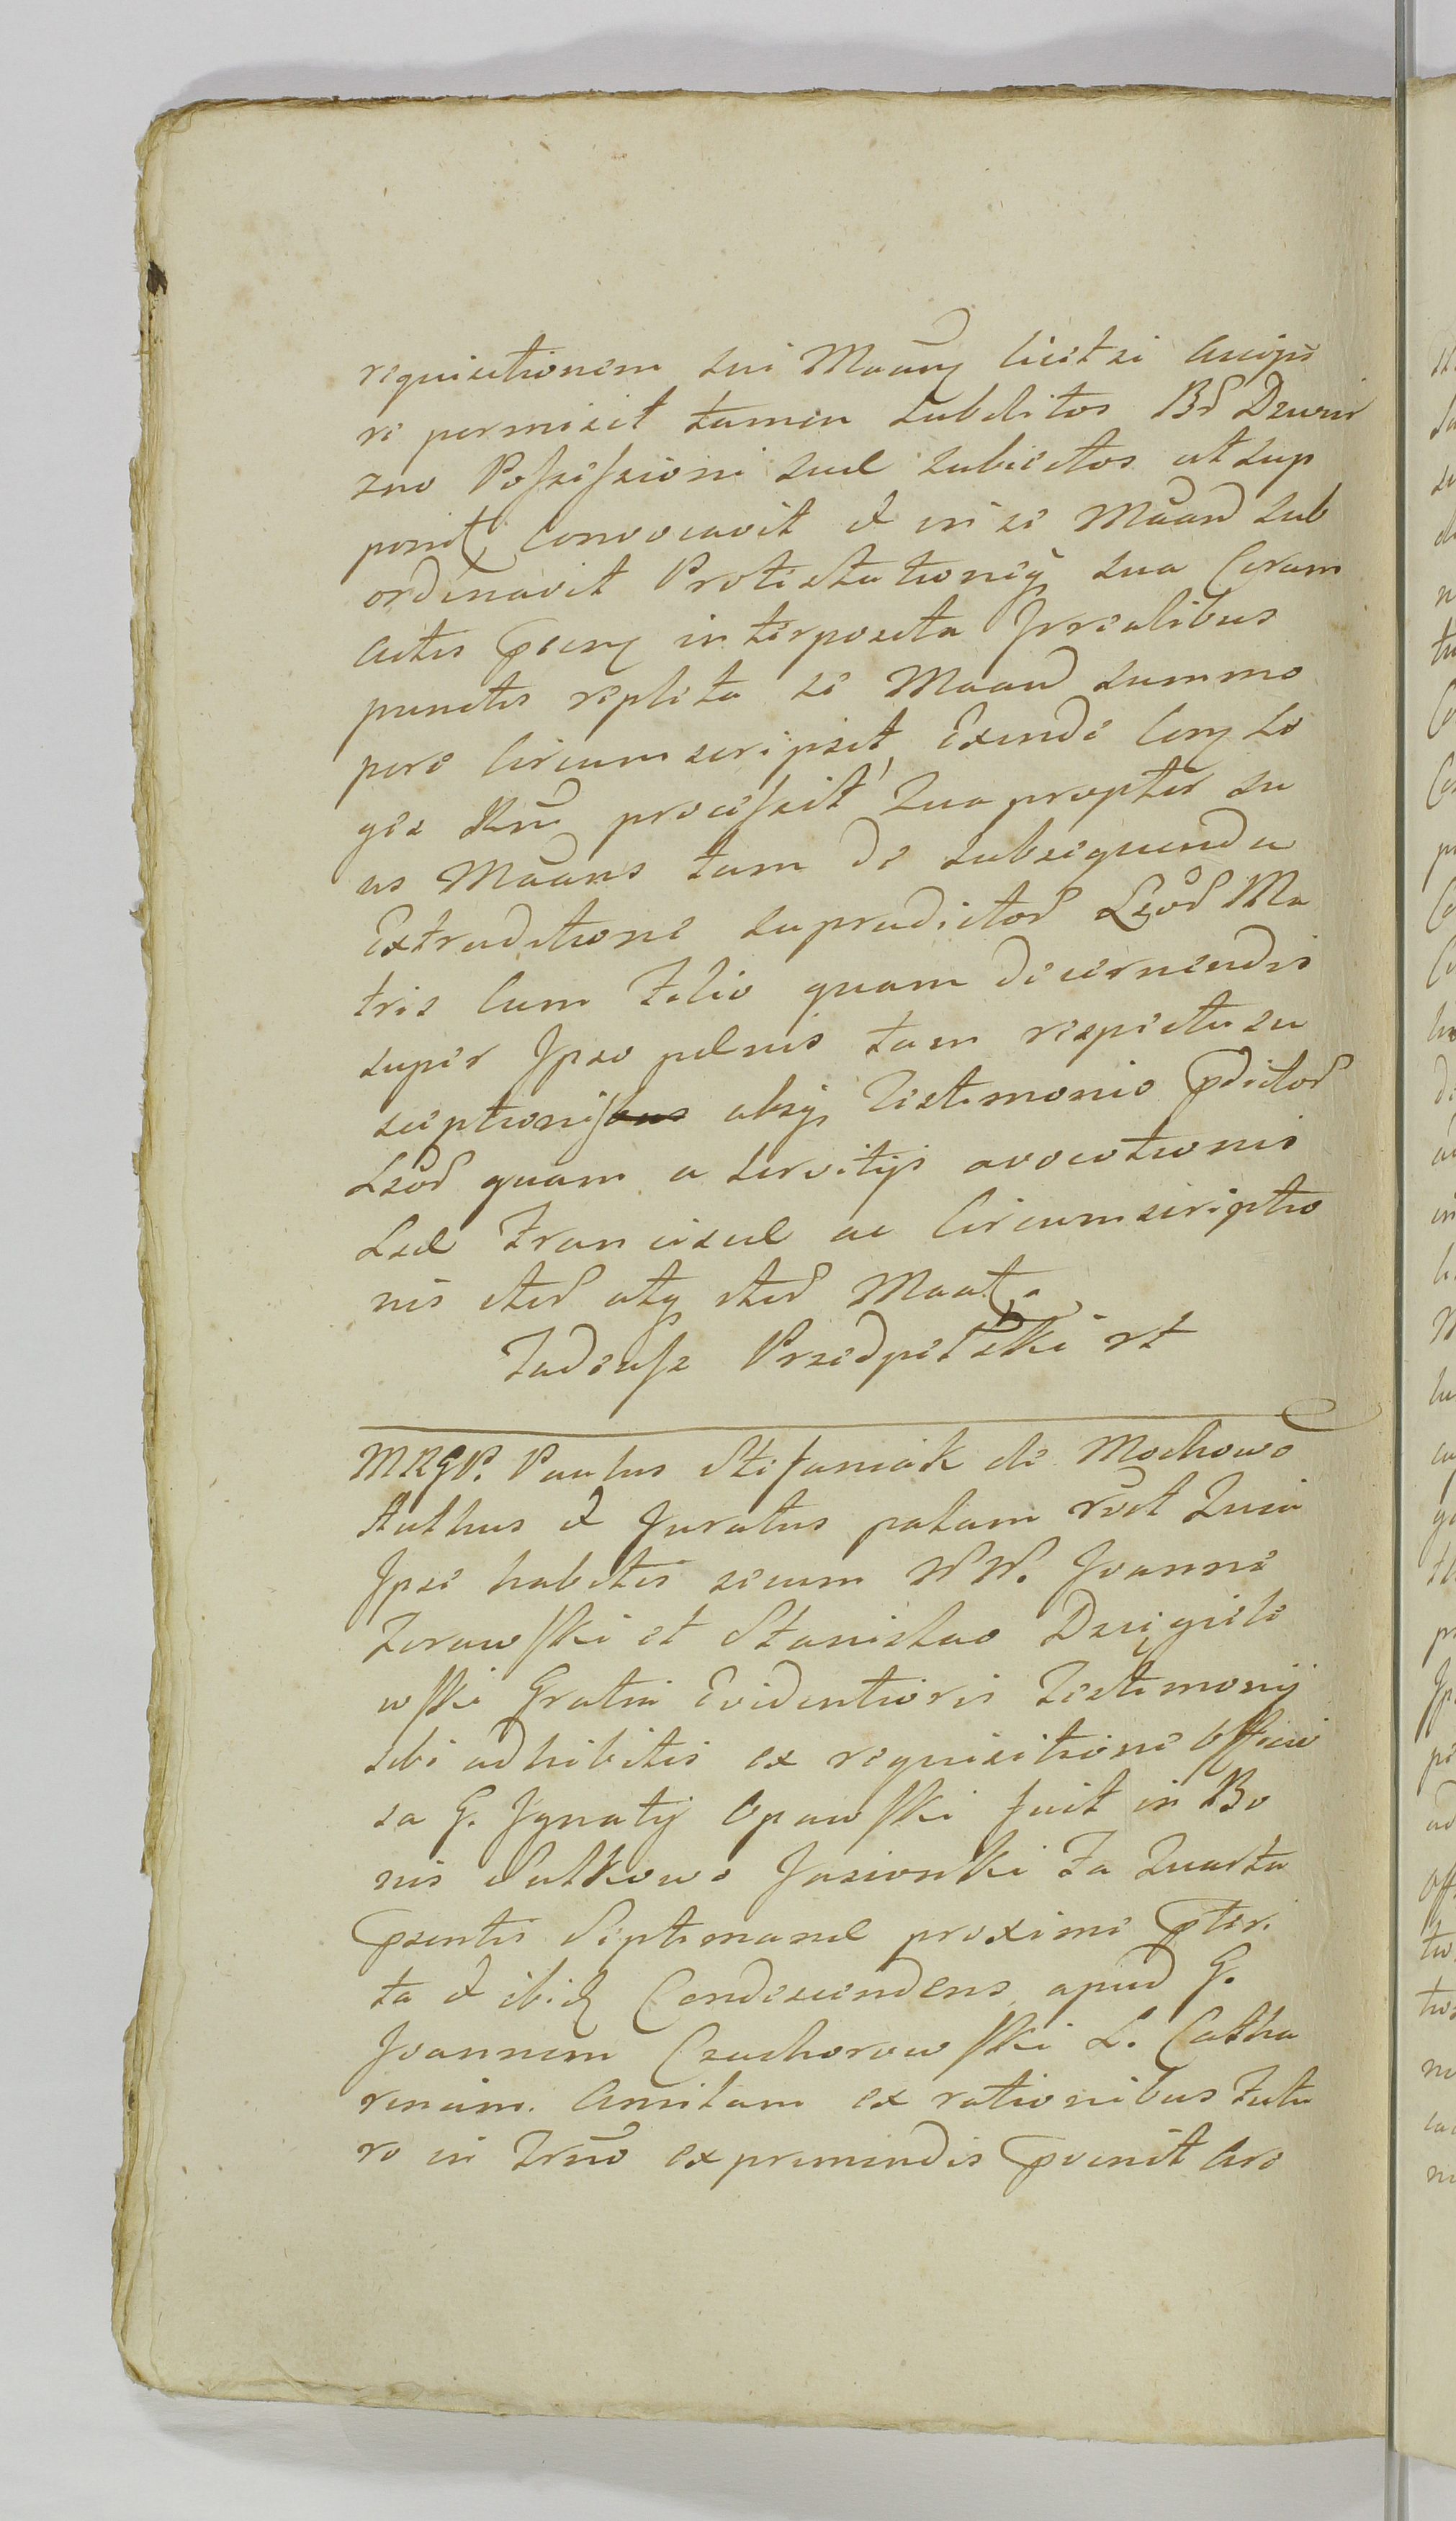 requisitionem sui Maan̄ licet si accipe
re permisit tamen subditos Bd Dzwier
zno Possessioni suæ subiectos ut sup
ponit convocavit & in se Maand sub
ordinavit Protestationeq̃ sua Coram
actis interposita Irrealibus
punctis repleta se Maand summo
pere Circumscripsit, Exinde Con Le
ges Rni processit, Qua propter su
us Maans tam de subsequenda
Extraditione supradictor Lsor Ma
tris Cum Filio quam decernendis
super Ipso pænis tam respectu su
sceptionis absq Testimonio pdictor
Lsor quam a servitijs avocationis
Lsæ Franciscæ ac Circumscriptio
nis iter atq iter Maat.
Tadeusz Przedpełski rt
MRGP. Paulus Stefaniak de Mochowo
Authus & Juratus palam rūt Quia
Ipse habitis secum NN. Joanne
Zorawski et Stanislao Dzięgiele
wski Gratia Evidentioris Testimonij
sibi adhibitis ex requisitione officio
sa G. Ignatij Opawski fuit in Bo
nis Sulkowo Jasionki Fa Quarta
pzentis Septimanæ proxime pteri
ta & ibid Condescendens apud G.
Joannem Czachorowski L. Catha
rinam Ancilam ex rationibus Futu
ro in Trno expremendis pvenit Are